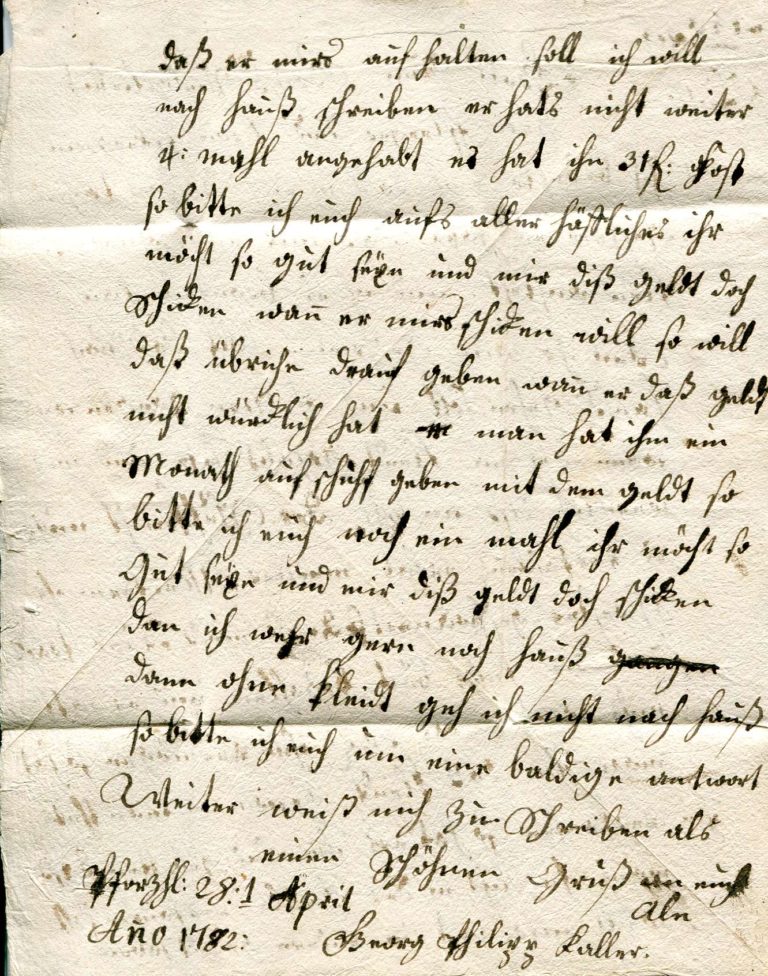 daß er mirs auf halten soll ich will
nach hauß schreiben er hats nicht weiter
4: mahl angehabt es hat ihn 31f: kost
so bitte ich euch aufs aller häßliches ihr
möcht so gut seÿn und mir diß geldt doch
schicken wann er mirs schicken will so will
daß übriche drauf geben wann er daß geldt
nicht würcklich hat man hat ihm ein
Monath auf schuff geben mit dem geldt so
bitte ich euch noch ein mahl ihr möcht so
gut seÿn und mir diß geldt doch schicken
dan ich wehr gern noch hauß gangen
dann ohne kleidt geh ich nicht nach hauß
so bitte ich euch um eine baldige antwort
Weiter weiß nich zu Schreiben als
einen Schöhnen Gruß an euch
Alle
Pforzhl: 28:1 April
Año 1782: Georg Philipp Kaller.